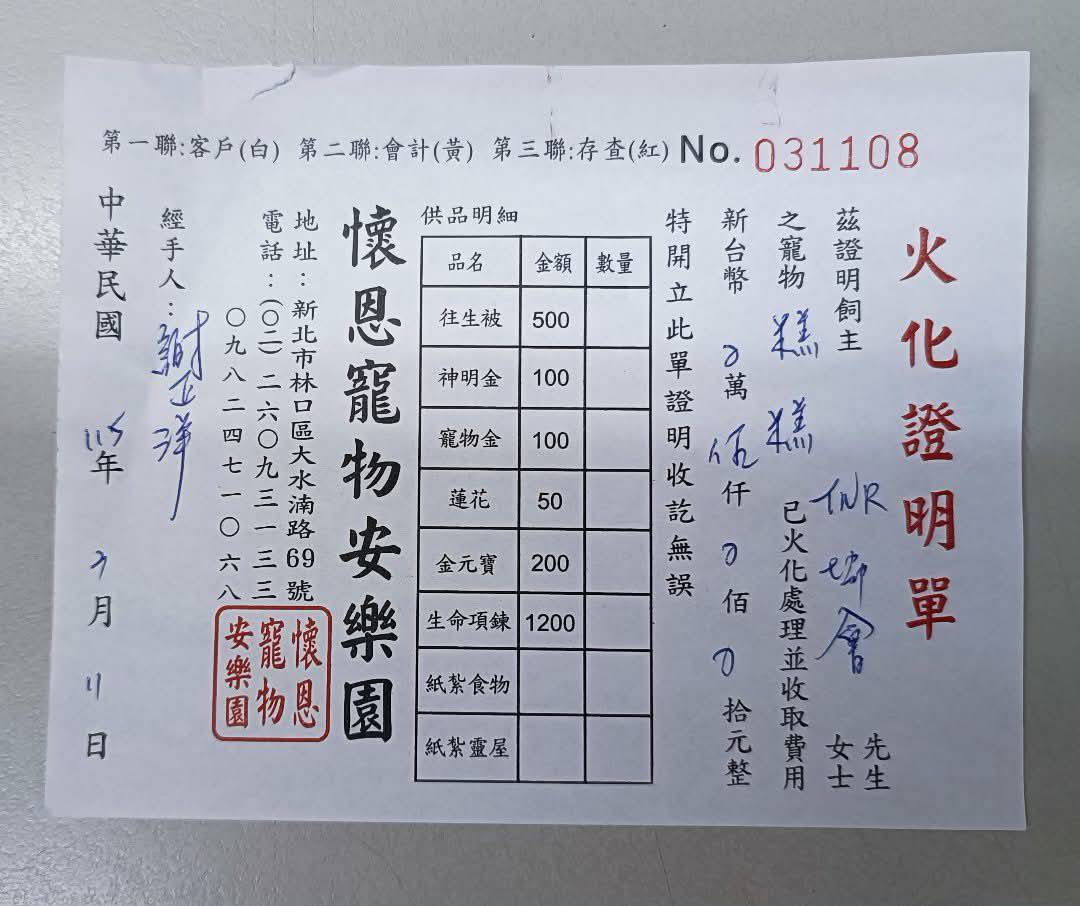 第一聯:客戶(白) 第二聯:會計(黃) 第三聯:存查(紅) No. 031108
火化證明單
茲證明飼主 TNR 協會 先生
女士
之寵物 糕糕 已火化處理並收取費用
新台幣 0萬 伍仟 0佰 0拾元整
特開立此單證明收訖無誤
供品明細
品名 金額 數量
往生被 500
神明金 100
寵物金 100
蓮花 50
金元寶 200
生命項鍊 1200
紙紮食物
紙紮靈屋
懷恩寵物安樂園
地址:新北市林口區大水湳路69號
電話:(〇二)二六〇九三一三三
〇九八二四七一〇六八
懷恩
寵物
安樂園
經手人:謝正洋
中華民國 115年 3月 11日